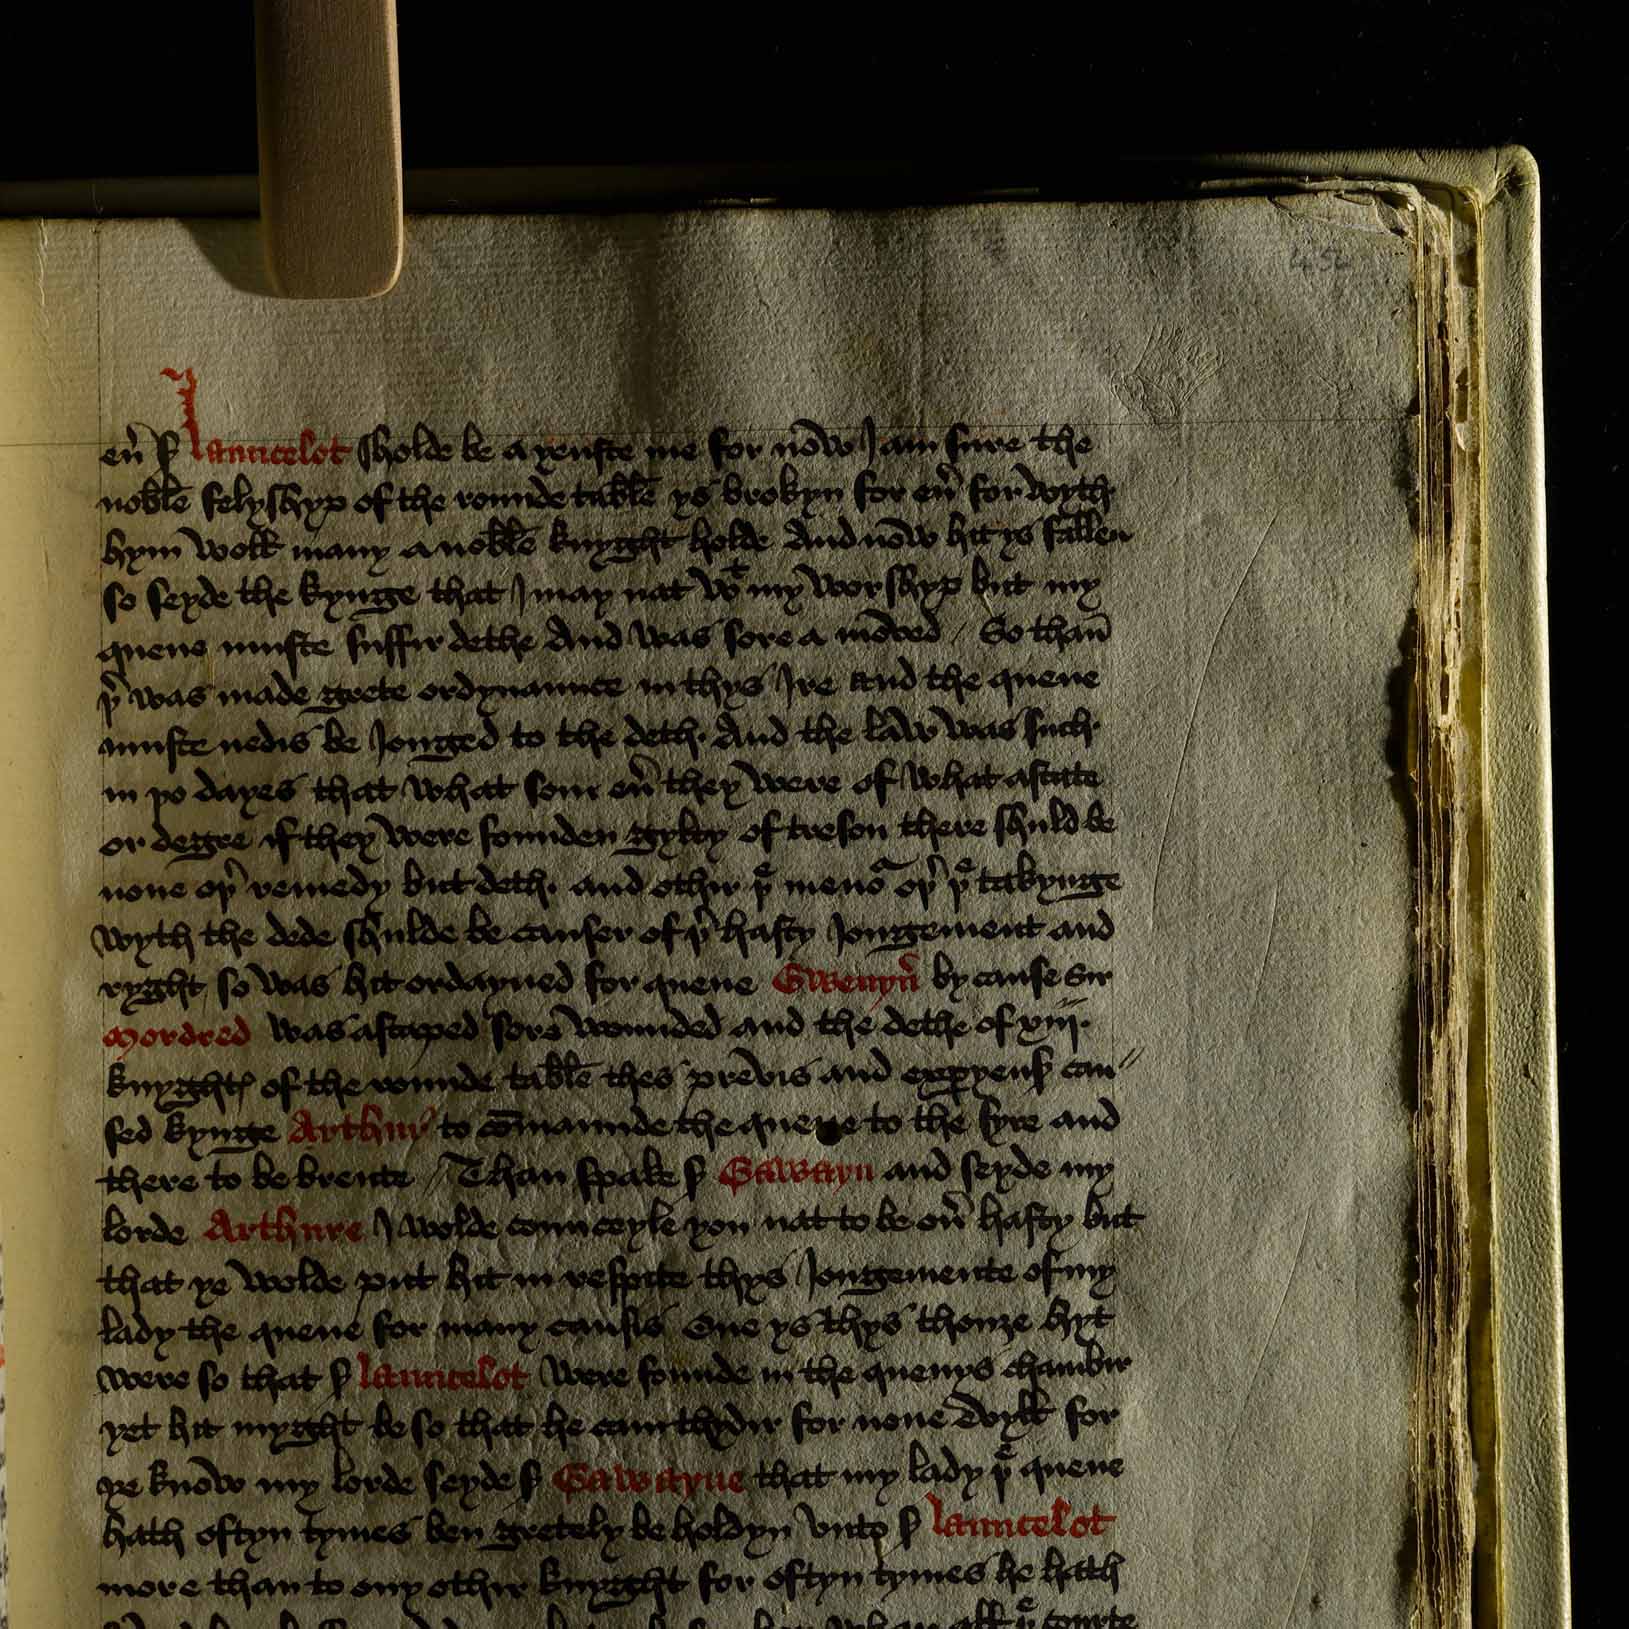 454
eu̾ ẞ Launcelot sholde be a yenste me for now I am sure the
noble felyshyp of the rounde table ys brokyn for eu̾ for wyth
hym woll many a noble knyght holde And now hit ys fallen
so seyde the kynge that I may nat wᵗ my worshyp but my
quene muste suffir dethe And was sore a moved / So than̄
þ̾ was made grete ordynaunce in thys Ire and the quene
muste nedis be Jouged to the deth. And the law was such
in þo dayes that what som eu̾ they were of what astate
or degre if they were founden gylty of treson there shuld be
none oþ̾ remedy but deth. and othir þᵉ menoᵃ oþ̾ þᵉ takynge
wyth the dede shulde be causer of þ̾ hasty Jougement and
ryght so was hit ordayned for quene Gwenyu̾ by cause Sir
Mordred was ascaped sore wounded and the dethe of xiij
knyghtꝭ of the rounde table thes previs and exꝑyensꝭ cau″
sed kynge Arthur to cōmaunde the quene to the fyre and
there to be brente // Than spake ẞ Gawayn and seyde my
lorde Arthure I wolde counceyle you nat to be ou̾ hasty but
that ye wolde put hit in respite thys Jougemente of my
lady the quene for many causis One ys thys thouze hyt
were so that ẞ Launcelot were founde in the quenys chambir
yet hit myght be so that he cam thydir for none evyll for
ye know my lorde seyde ẞ Gawayne that my lady þᵉ quene
hath oftyn tymes ben gretely be holdyn vnto ẞ Launcelot
more than to ony othir knyght for oftyn tymes he hath